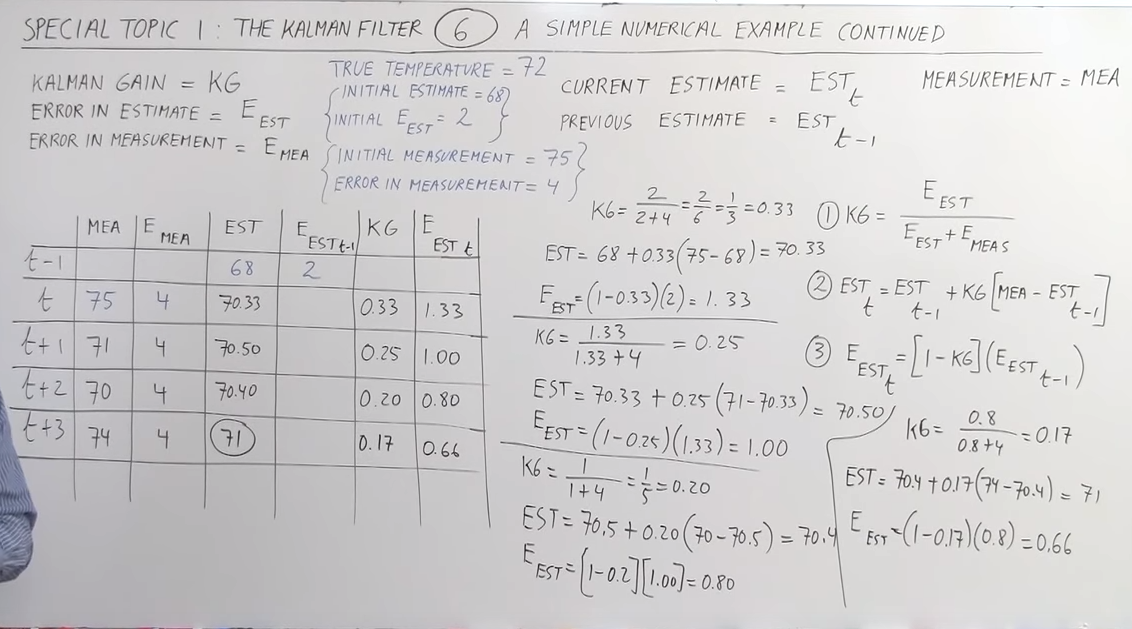 SPECIAL TOPIC 1 : THE KALMAN FILTER 6 A SIMPLE NUMERICAL EXAMPLE CONTINUED
KALMAN GAIN = KG
ERROR IN ESTIMATE = E_EST
ERROR IN MEASUREMENT = E_MEA
TRUE TEMPERATURE = 72
{INITIAL ESTIMATE = 68}
{INITIAL E_EST = 2}
{INITIAL MEASUREMENT = 75}
{ERROR IN MEASUREMENT = 4}
CURRENT ESTIMATE = EST_t
PREVIOUS ESTIMATE = EST_t-1
MEASUREMENT = MEA
MEA E_MEA EST E_EST t-1 KG E_EST t
t-1 68 2
t 75 4 70.33 0.33 1.33
t+1 71 4 70.50 0.25 1.00
t+2 70 4 70.40 0.20 0.80
t+3 74 4 71 0.17 0.66
KG = 2/(2+4) = 2/6 = 1/3 = 0.33
EST = 68 + 0.33(75-68) = 70.33
E_EST = (1-0.33)(2) = 1.33
KG = 1.33/(1.33+4) = 0.25
EST = 70.33 + 0.25(71-70.33) = 70.50
E_EST = (1-0.25)(1.33) = 1.00
KG = 1/(1+4) = 1/5 = 0.20
EST = 70.5 + 0.20(70-70.5) = 70.4
E_EST = [1-0.2][1.00] = 0.80
① KG = E_EST/(E_EST + E_MEAS)
② EST_t = EST_t-1 + KG[MEA - EST_t-1]
③ E_EST t = [1-KG](E_EST t-1)
KG = 0.8/(0.8+4) = 0.17
EST = 70.4 + 0.17(74-70.4) = 71
E_EST = (1-0.17)(0.8) = 0.66